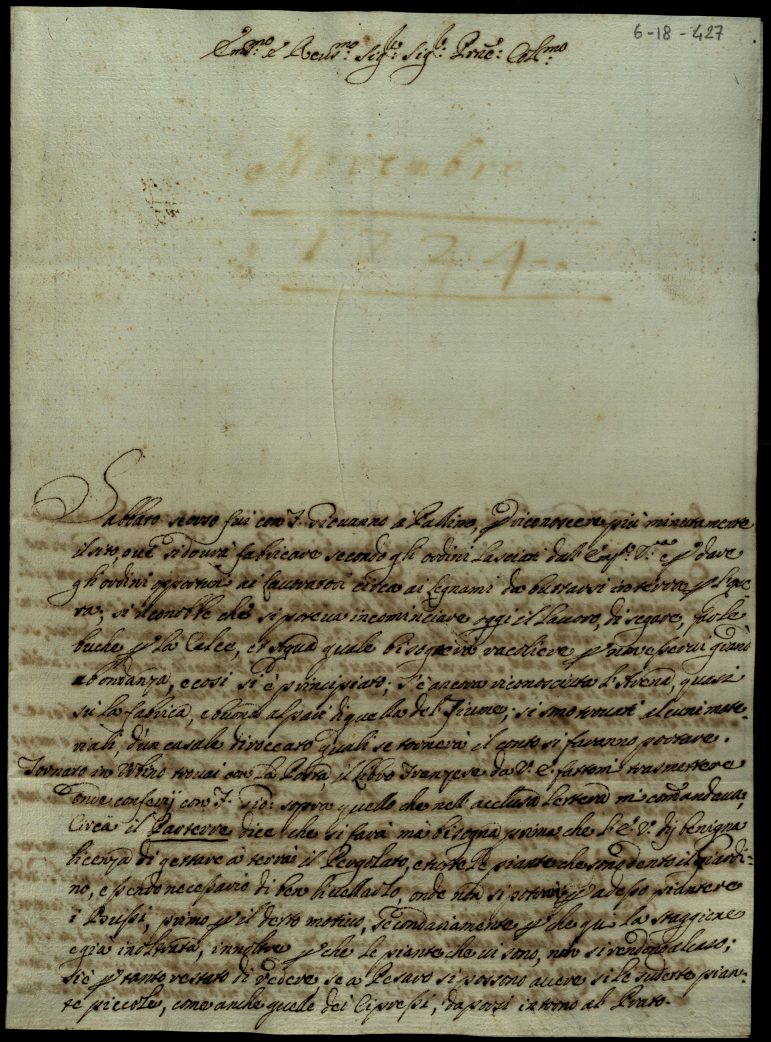 6-18-427
Em:mo e Reu:mo Sig:r Sig:r Prne: Col:mo
Novembre
1724
Sabbato scorso fui con F. Giouanno a Pallino, p riconoscere più minutamente
il sito, oue si dourà fabricare secondo gli ordini lasciati dall' Em:za V:ra e p dare
gli ordini opportuni ai Lauoratori circa ai Legnami da buttarsi in terra p l'ope
ra, si riconobbe che si poteua incominciare oggi il Lauoro, di segare, far le
buche p la Calce, et Acqua quale bisognerà racoliere p non esserui
abondanza, e così si è principiato; S'è ancora riconosciuta l'Arena, quasi
su la fabrica, e buona al pari di quella del Fiume; si sono trouati alcuni mate
riali, d'un casale diroccato quali se tornerà il conto si faranno portare.
Tornato in Urbino trouai con la Posta, il Libro Franzese da V. E. fattomi trasmettere
onde conferij con F. Gio: sopra quello che nell'acclusa lettera mi comandaua,
Circa il Parterre dice che si farà mà bisogna prima che l'E. V. dij benigna
licenza di gettare à terra il Pergolato, e tutte le piante che sono dento il giardi=
no, essendo necessario di ben liuellarlo, onde non si potrà p adesso piantere
i Bussi, primo p il detto motiuo, Secondariamente p che qui la staggione
e già inoltrata, innoltre p che le piante che ui sono, non si rendono al caso;
si è p tanto restato di uedere, se a Pesaro si possono auere si le sudette pian=
te piccole, come anche quelle dei Cipressi, da porsi intorno al Prato.